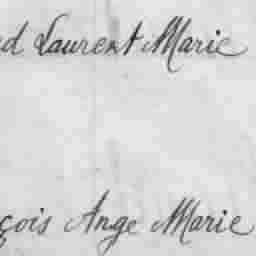 d Laurent Marie
çois Ange Marie